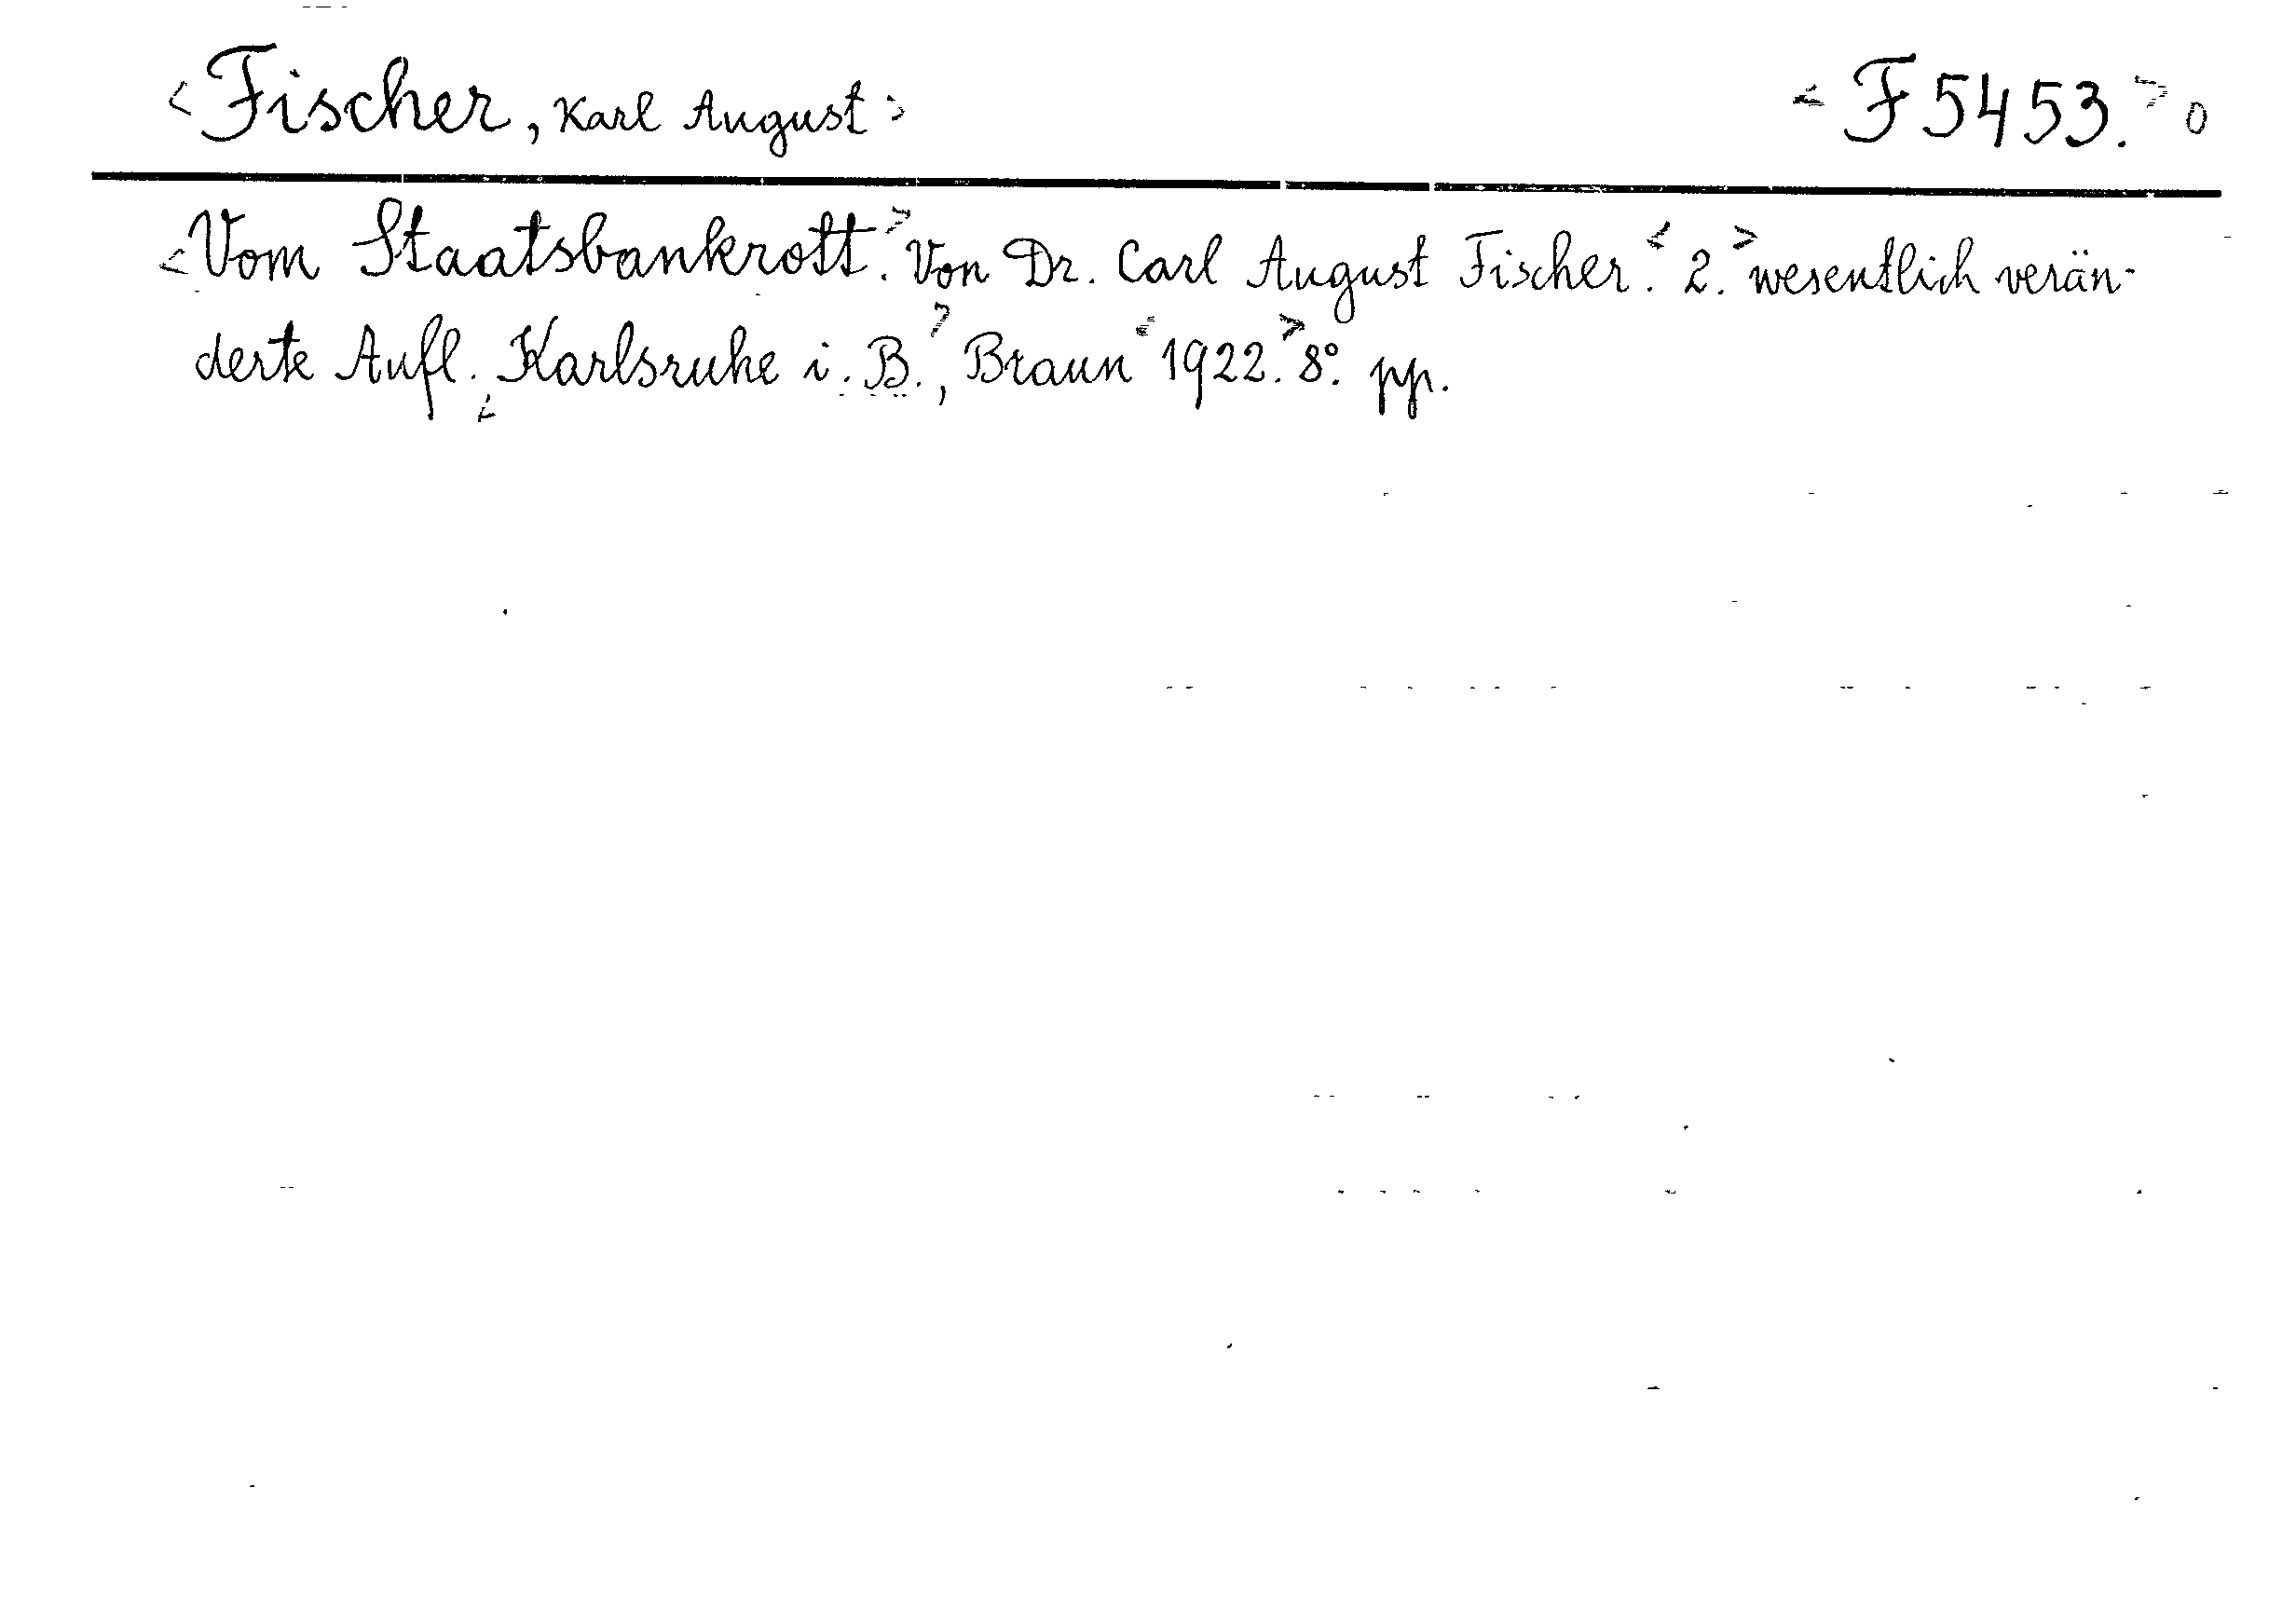 <Fischer, Karl August> <F 5453.> 0
<Vom Staatsbankrott.> Von Dr. Carl August Fischer. <2.> wesentlich verän-
derte Aufl. <Karlsruhe i. B.>, Braun <1922.> 8°. pp.